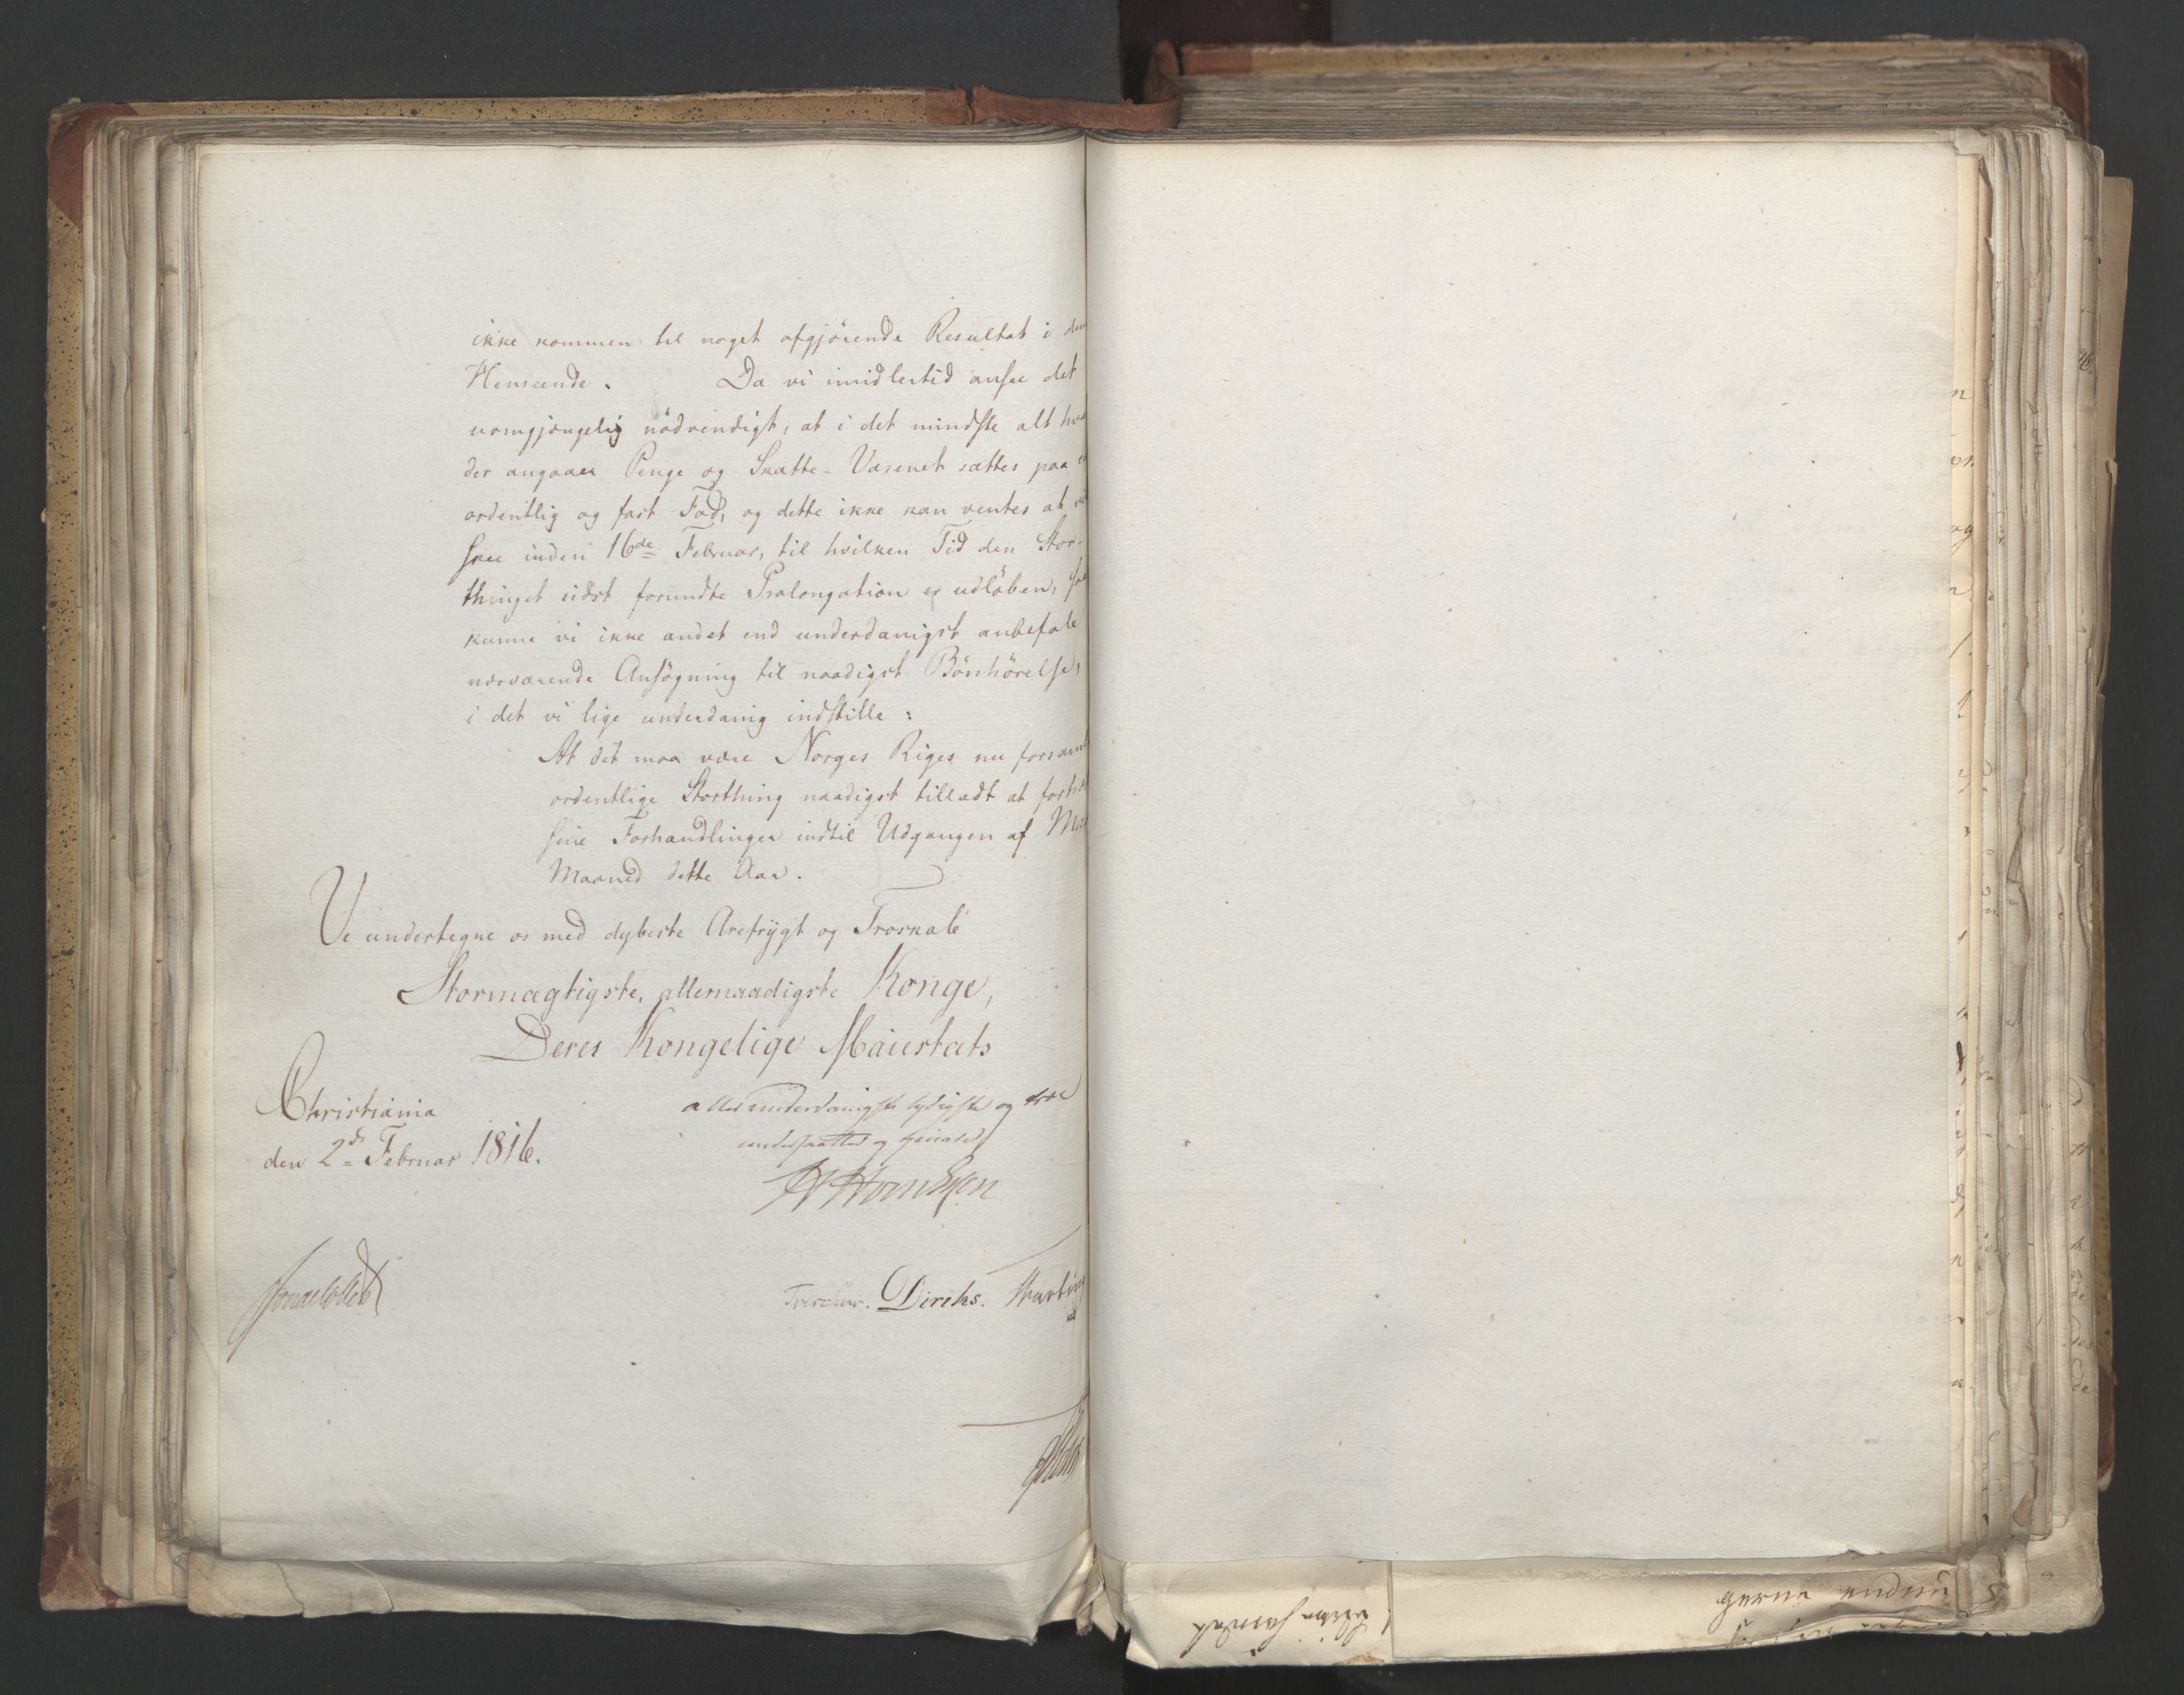 ikke kommen til noget afgjörende Resultat i den
Henseende. Da vi imidlertid ansee det
uomgjængelig nödvendigt, at i det mindste alt hva
der angaaer Penge og Skatte-Væsenet sættes paa
ordentlig og fast Fod, og dette ikke kan ventes at
skee inden 16de Februar, til hvilken Tid den Stor-
thinget sidst forundte Prolongation er udlöben, saa
kunne vi ikke andet end underdanigst anbefale
nærværende Ansögning til naadigst Bönhörelse,
i det vi lige underdanig indstille:
At det maa være Norges Riges nu forsaml
ordentlige Storthing naadigst tilladt at forts
sine Forhandlinger indtil Udgangen af Ma
Maaned dette Aar.
Vi undertegne os med dybeste Ærefrygt og Troskab
Stormægtigste, allernaadigste Konge,
Deres Kongelige Majestæts
Christiania
den 2d Februar 1816.
allerunderdanigste lydigste og troe
undersaatter og tjenere
Treschow. Diriks.
gerne endnu